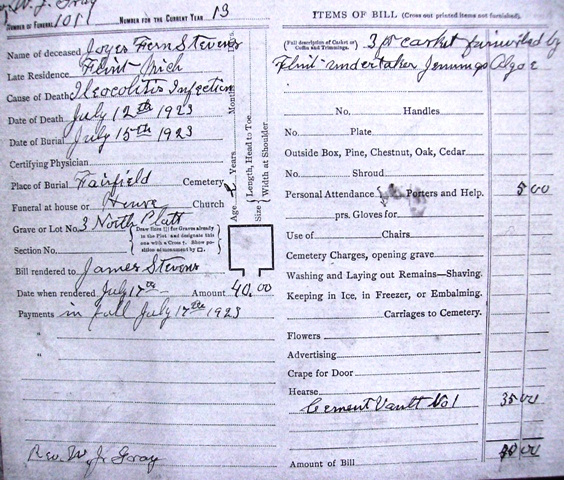 W. J. Gray
NUMBER OF FUNERAL 1011 NUMBER FOR THE CURRENT YEAR 13
Name of deceased Joyes Fern Stevens
Late Residence Flint Mich
Cause of Death Ileocolitis Infection
Date of Death July 12th 1923
Date of Burial July 15th 1923
Certifying Physician
Place of Burial Fairfield Cemetery
Funeral at house or House Church
Grave or Lot No. 3 North Platt
Section No.
{Draw lines [ ] for Graves already in the Plot and designate this one with a Cross †. Show position of monument by □.}
Age Years Months Days
Size {Length, Head to Toe. Width at Shoulder
Bill rendered to James Stevens
Date when rendered July 17th Amount 40.00
Payments in full July 17th 1923
"
"
Rev. W. J. Gray
ITEMS OF BILL (Cross out printed items not furnished).
(Full description of Casket or Coffin and Trimmings.) 3 ft casket furnished by
Flint undertaker Jennings Algoe
No. Handles
No. Plate
Outside Box, Pine, Chestnut, Oak, Cedar
No. Shroud
Personal Attendance Porters and Help. 5 00
prs. Gloves for
Use of Chairs.
Cemetery Charges, opening grave
Washing and Laying out Remains—Shaving.
Keeping in Ice, in Freezer, or Embalming.
Carriages to Cemetery.
Flowers
Advertising
Crape for Door
Hearse
Cement Vault No 1 35 00
Amount of Bill 40 00